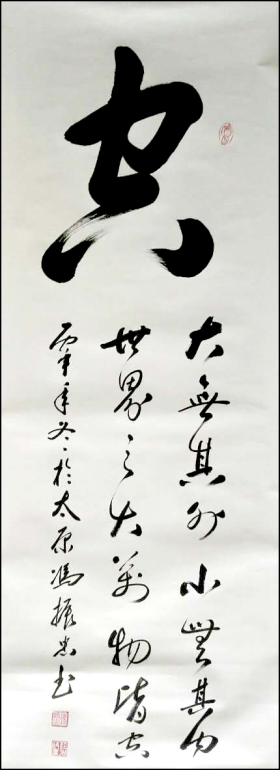 空
大無其外小無其内
世界之大萬物皆空
丙申年冬於太原馮振忠书